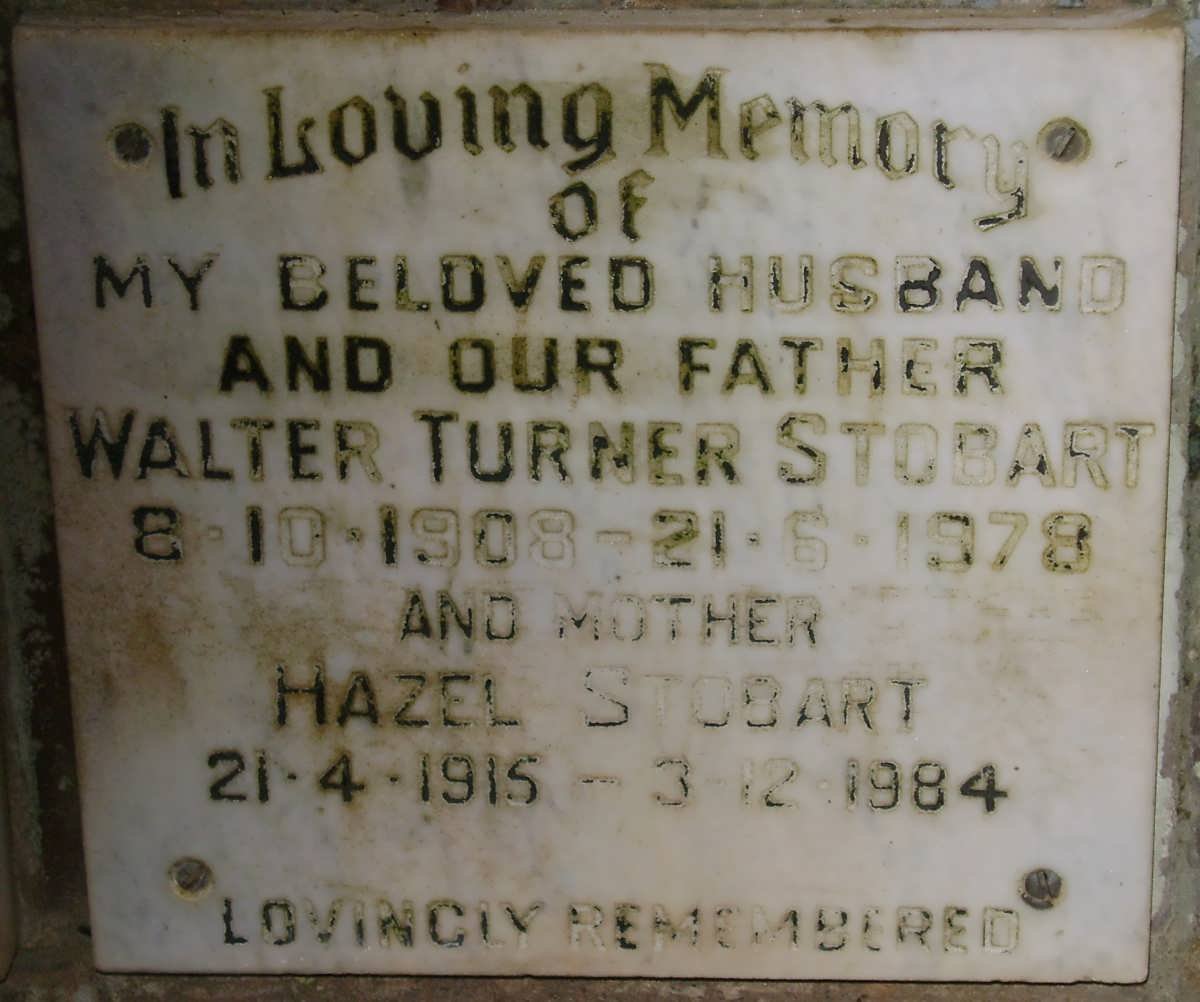 In Loving Memory
of
MY BELOVED HUSBAND
AND OUR FATHER
WALTER TURNER STOBART
8·10·1908 – 21·6·1978
AND MOTHER
HAZEL STOBART
21·4·1915 – 3·12·1984
LOVINGLY REMEMBERED